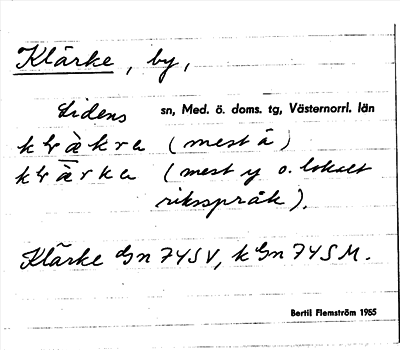 Klärke, by,
Lidens sn, Med. ö. doms. tg, Västernorrl. län
(mest ä)
(mest y o. lokalt
riksspråk).
Klärke Gn 7450 V, k Gn 745 M.
Bertil Flemström 1965